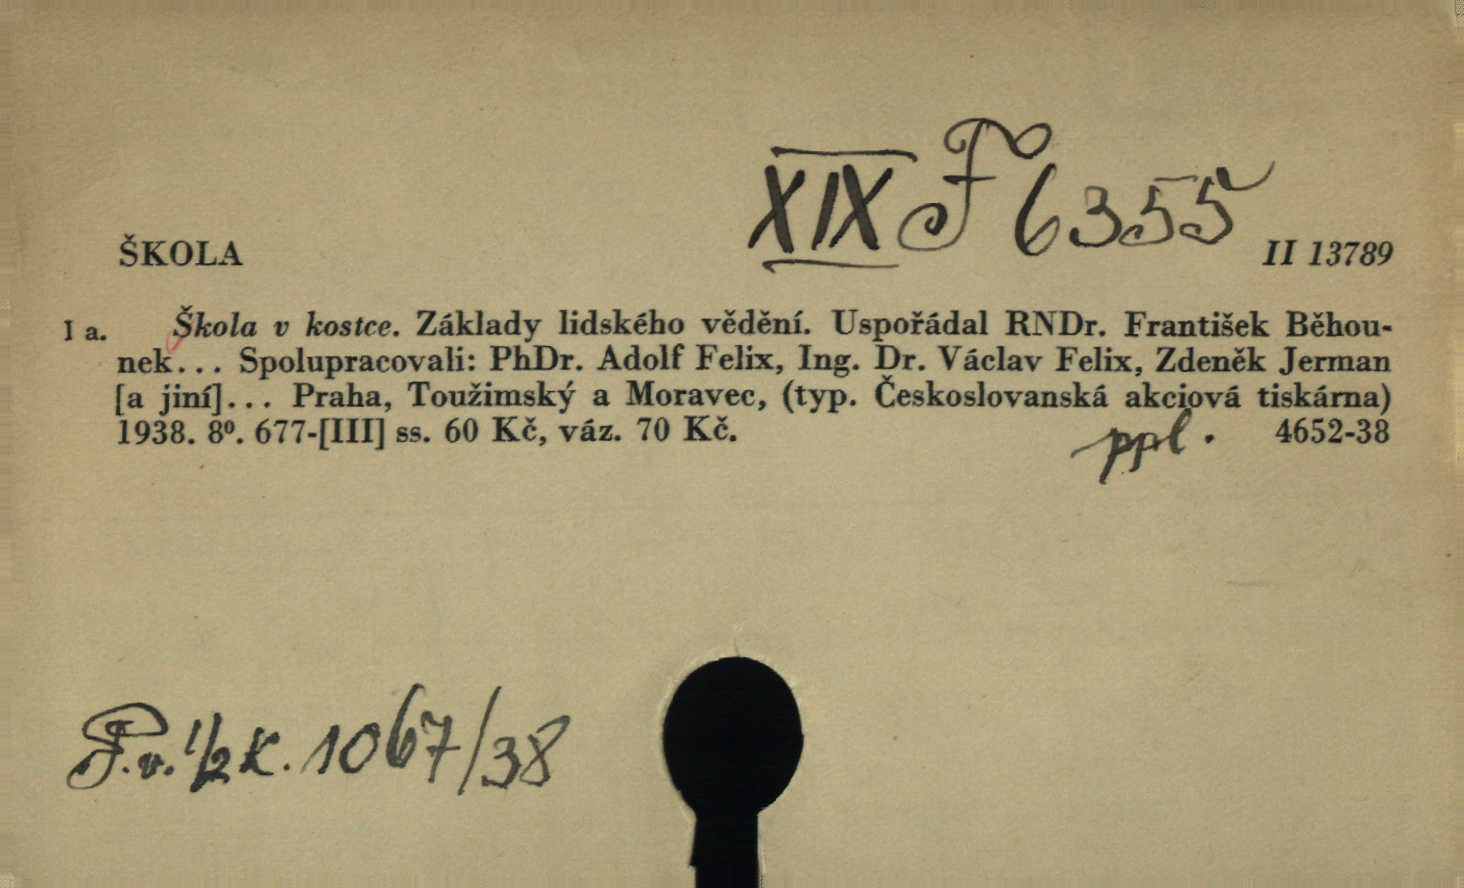 XIX F 6355
ŠKOLA II 13789
I a. Škola v kostce. Základy lidského vědění. Uspořádal RNDr. František Běhou-
nek... Spolupracovali: PhDr. Adolf Felix, Ing. Dr. Václav Felix, Zdeněk Jerman
[a jiní]... Praha, Toužimský a Moravec, (typ. Československá akciová tiskárna)
1938. 8⁰. 677-[III] ss. 60 Kč, váz. 70 Kč. ppl. 4652-38
P.v. 1/2 K. 1067/38